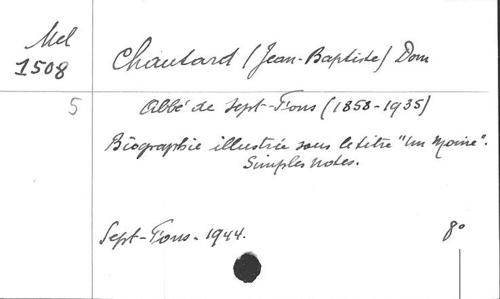 Mel
1508
Chautard (Jean-Baptiste) Dom
5
Abbé de Sept-Fons (1858-1935)
Biographie illustrée sous le titre "Un Moine".
Simples notes.
Sept-Fons - 1944.
8°